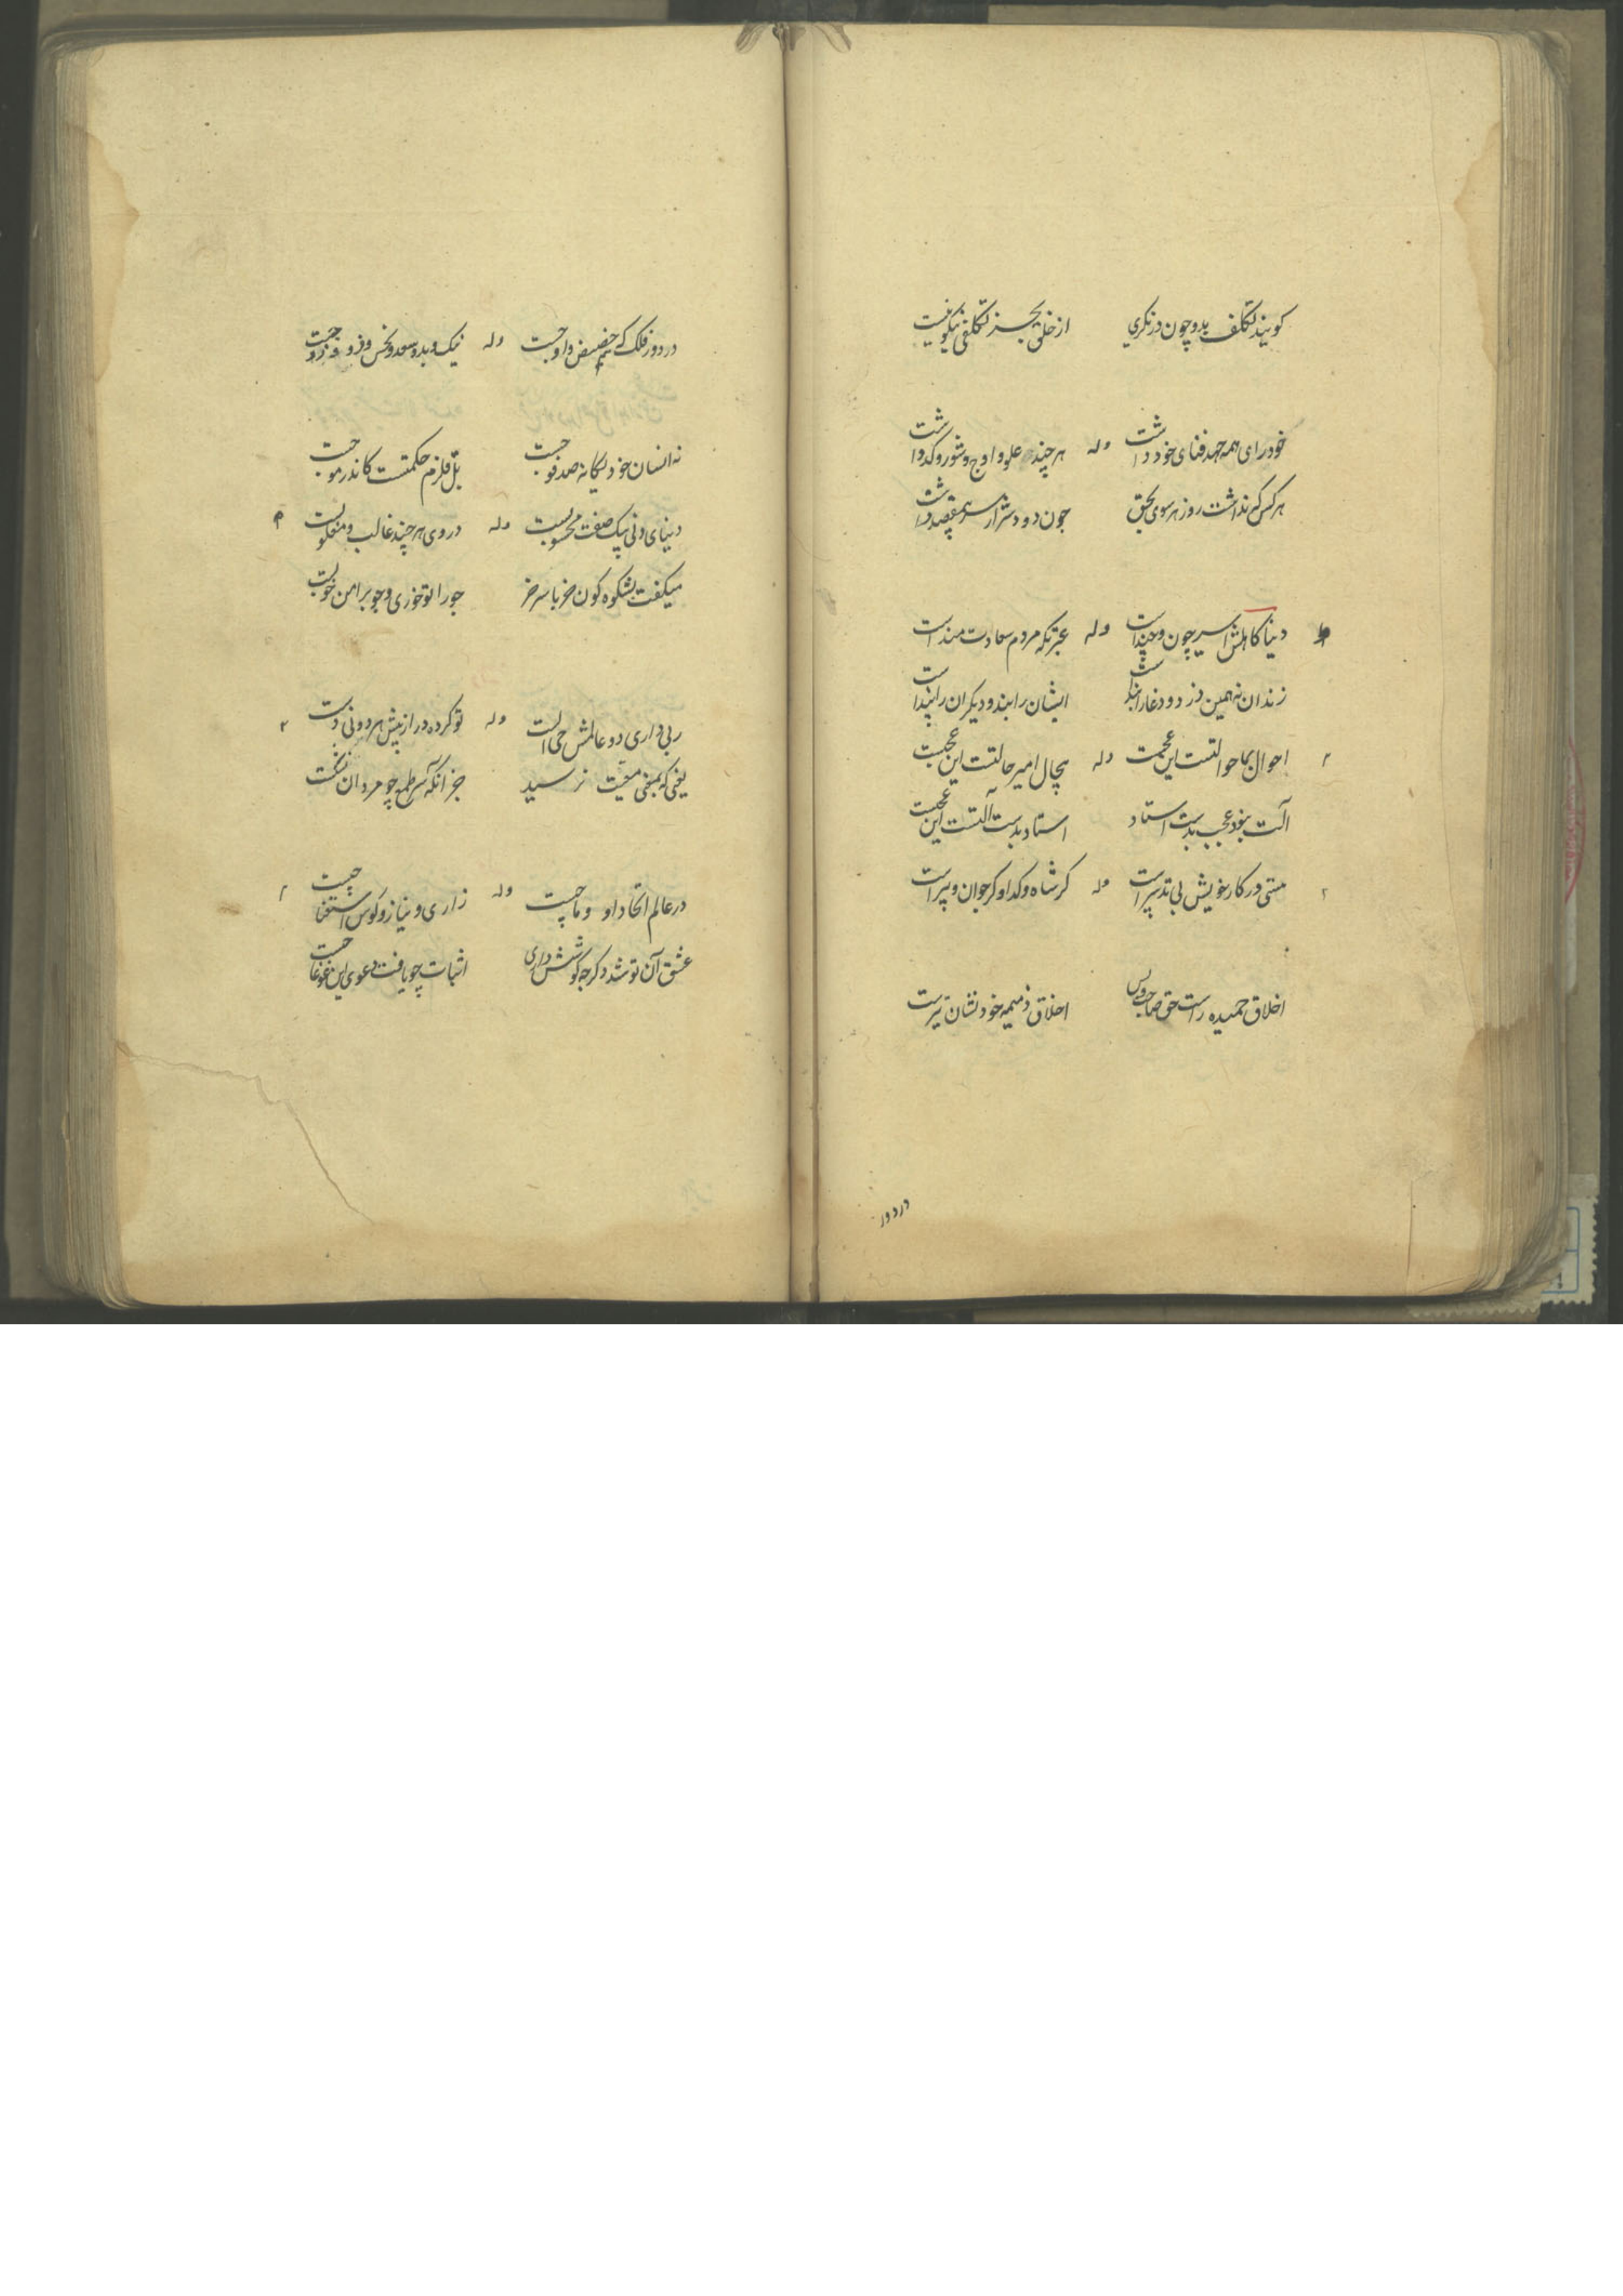 کویند تکلف بد و چون درنکری از خلق بجز تکلفی نیکو نیست
خود رای همه جهد فنای خود داشت وله هر چند علو و اوج و شور و کد داشت
هر کس که نداشت روز هر سوی بحق چون دود شرار سر مقصد داشت
دنیا کاهلش اسیر چون و چند است وله عبرتکه مردم سعادت مند است
زندان نه همین دزد و دغا را بند است ایشان را بند و دیکران را پند است
احوال بما حوالتست این عجبست وله بیحال امیر حالتست این عجبست
آلت نبود عجب بدست استاد استاد بدست آلتست این عجبست
هستی در کار خویش بی تدبیر است وله کر شاه و کدا و کر جوان و پیر است
اخلاق حمیده راست حق صاحب و بس اخلاق ذمیمه خود نشان تیر است
در دور
در دور فلک که حضیض و اوجست وله نیک و بد و سعد و نحس و فرد و زوجست
نه انسان خود یکانه صد فوجست بل قلزم حکمتست کاندر موجست
دنیای دنی بیک صفت محسوبست وله در وی هر چند غالب و مغلوبست
میکفت بشکوه کون خر با سر خر جو را تو خوری و چوب را من خوبست
ربی داری دو عالمش حی الست وله تو کرده دراز پیش هر دونی دست
یعنی که بمغنی معیت نرسید جز آنکه سر طمع چو مردان
در عالم اتحاد او و ما چیست وله زاری و نیاز و کوس استغنا چیست
عشق آن تو شد دکر چه کوشش داری اثبات چو یافت دعوی این غوغا چیست